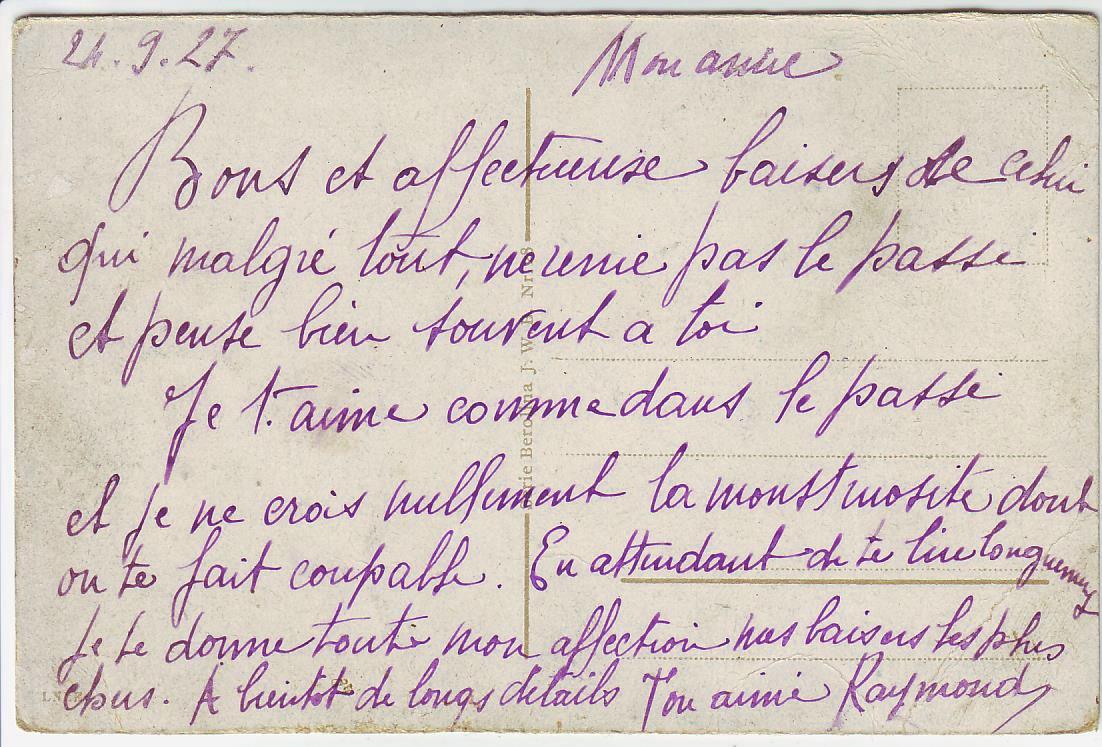 24.9.27.
Mon aimée
Bons et affectueuse baisers de celui
qui malgré tout, ne renie pas le passé
et pense bien souvent a toi
Je t'aime comme dans le passé
et je ne crois nullement la monstruosite dont
on te fait coupable. En attendant de te lire longuement
Je te donne toute mon affection mes baisers les plus
chers. A bientot de longs details Ton aimé Raymond
rie Berolina J. W. B. Nr. 8